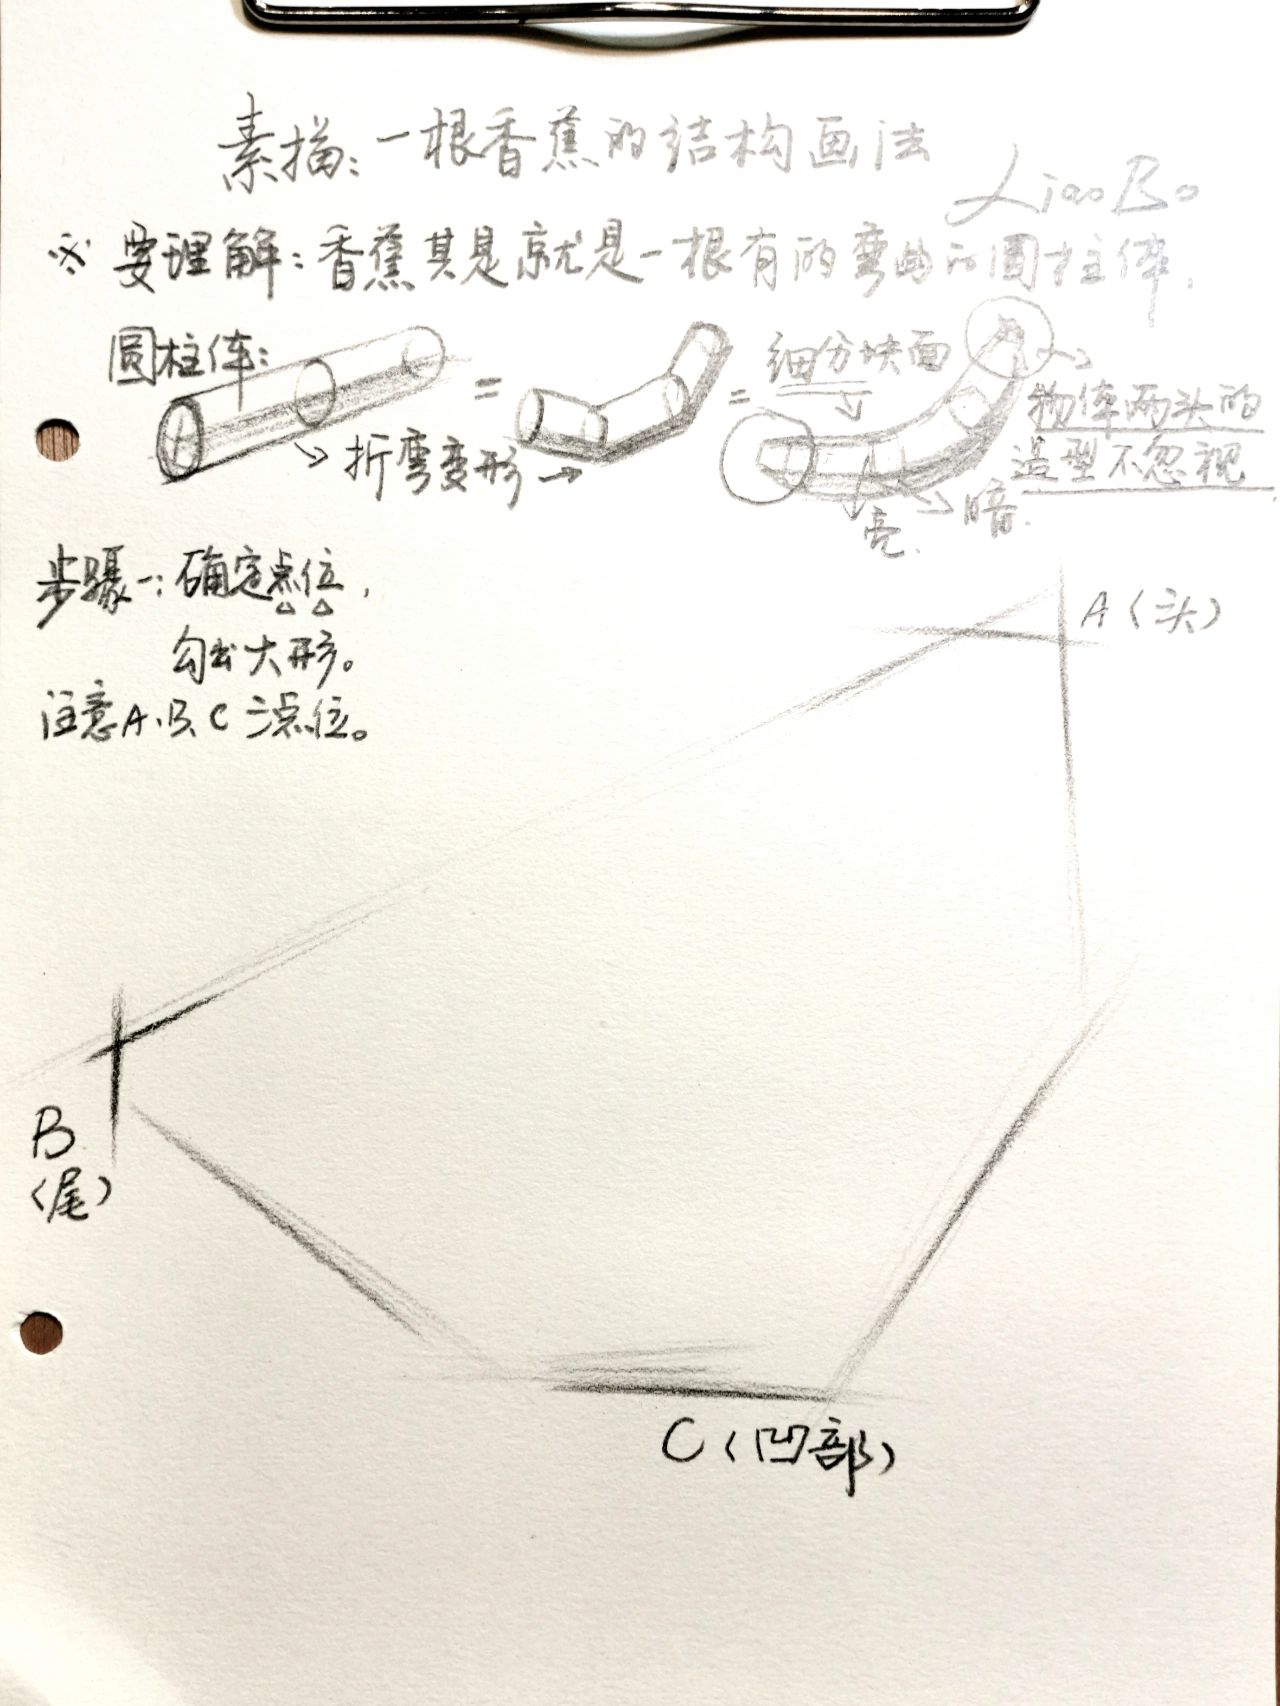 素描:一根香蕉的结构画法
LiaoBo
※ 要理解:香蕉其是就是一根有的弯曲的圆柱体.
圆柱体:
=
=
细分块面
物体两头的
造型不忽视
折弯变形→
亮.
暗.
步骤一:确定点位,
勾出大形。
注意A、B、C三点位。
A(头)
B
(尾)
C(凹部)